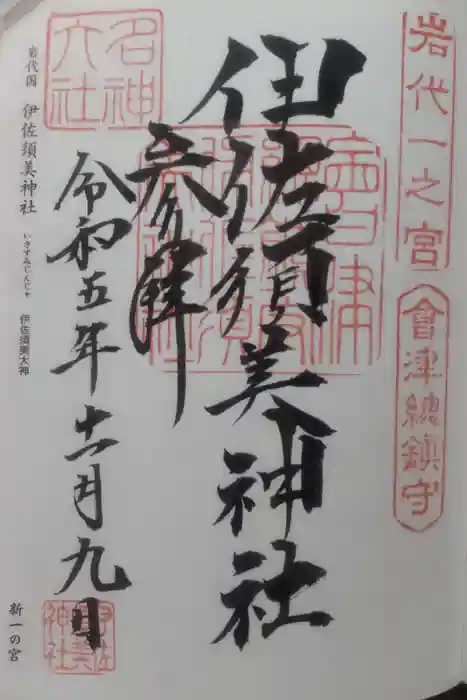 岩代一之宮
會津總鎮守
伊佐須美神社
参拝
令和五年十一月九日
名神
大社
岩代国 伊佐須美神社
いさすみじんじゃ
伊佐須美大神
新一の宮